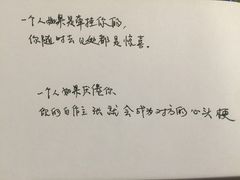 一个人如果是牵挂你的,
你随时去见她都是惊喜.
一个人如果厌倦你
你的自作主张就会成为对方的心头梗